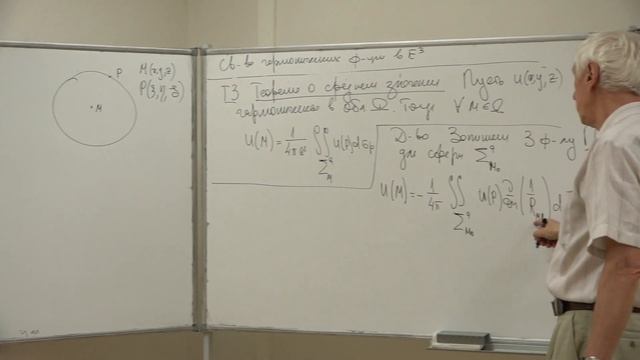 P M(x,y,z)
P(ξ,η,ζ)
M
Св-ва гармонических ф-ций в E³
T3 Теорема о среднем значении Пусть u(x,y,z)
гармоническая в обл Ω. Тогда ∀ M ∈ Ω
U(M) = 1/4πa² ∬ U(P)dσp
Д-во Запишем 3 ф-лу
для сферы Σ
U(M) = - 1/4π ∬ U(P) ∂/∂n (1/R) d